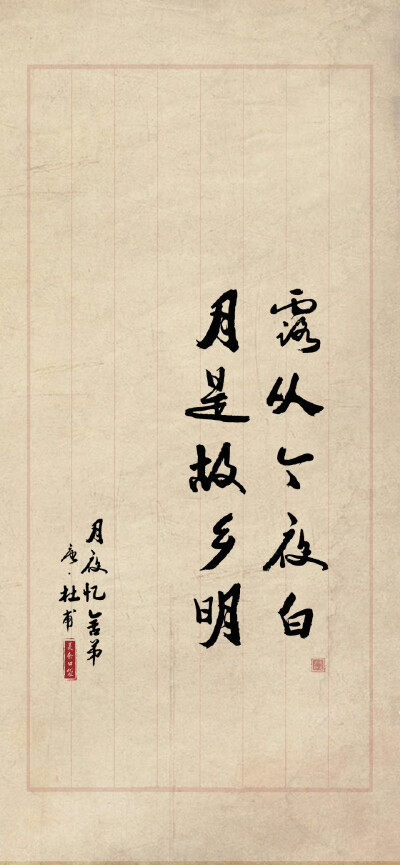 露从今夜白
月是故乡明
月夜忆舍弟
唐·杜甫